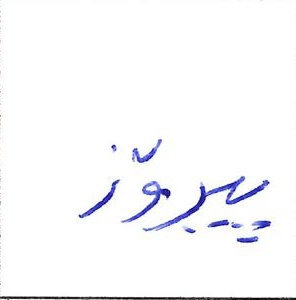 پیرۆز